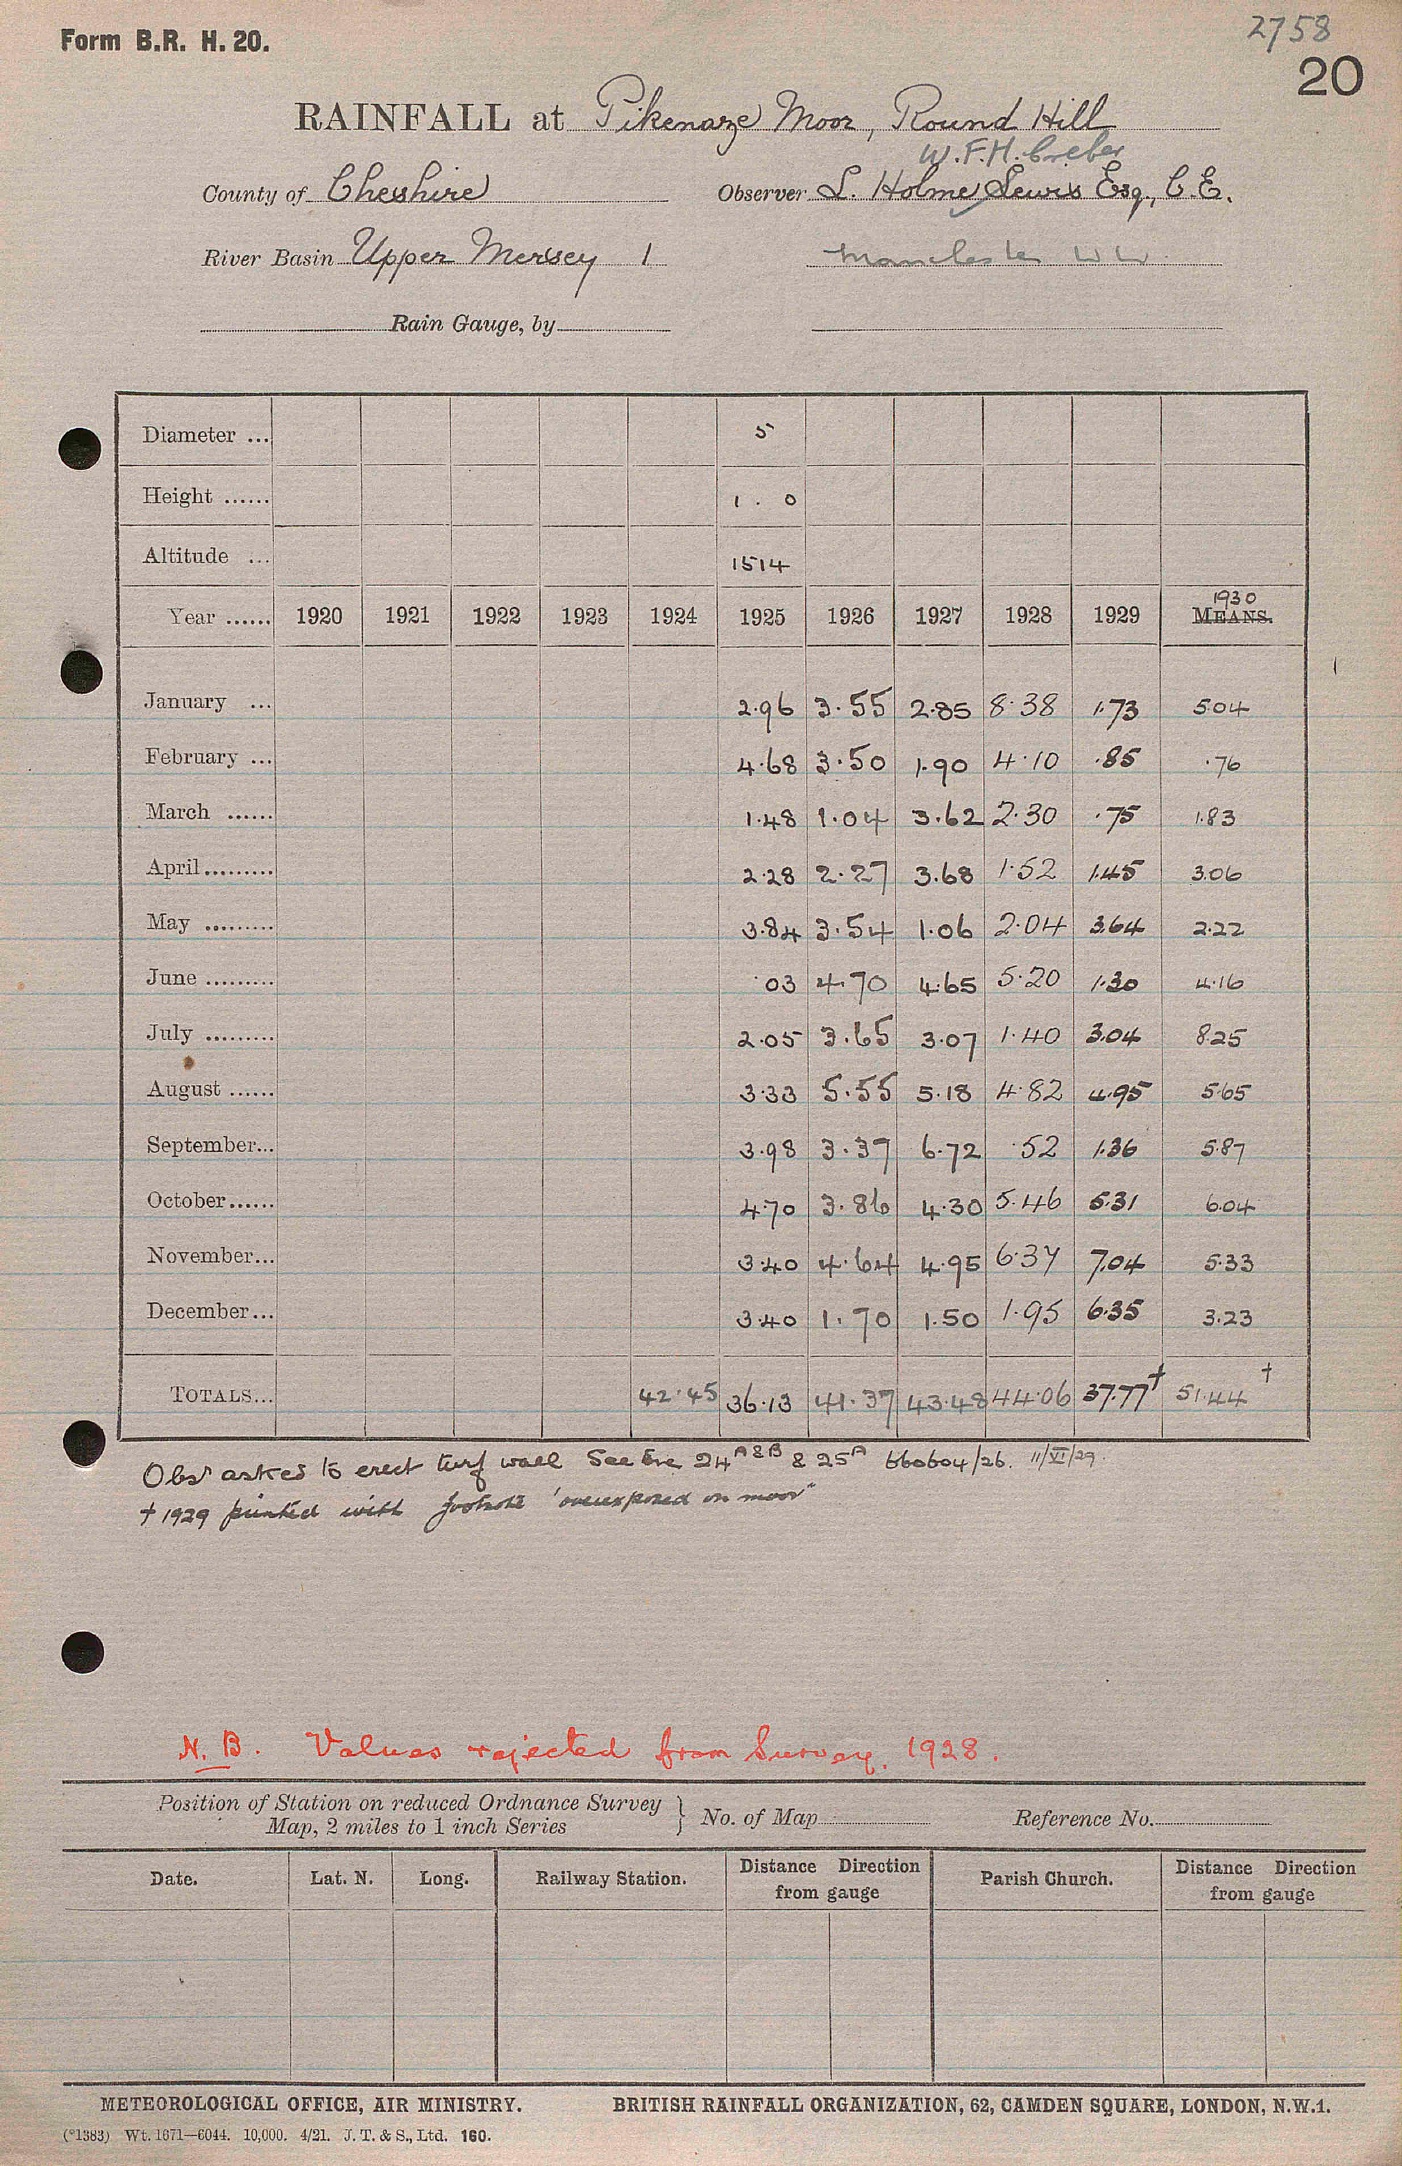 Form B.R. H. 20.
2758
20
RAINFALL at Pikenaze Moor, Round Hill
W.F.H. Creber
County of Cheshire Observer L. Holme Lewis Esq., C.E.
River Basin Upper Mersey 1 Manchester W W
Rain Gauge, by
Diameter ... 5
Height ...... 1 . 0
Altitude ... 1514
1930
Year ...... 1920 1921 1922 1923 1924 1925 1926 1927 1928 1929 MEANS.
January ... 2.96 3.55 2.85 8.38 1.73 5.04
February ... 4.68 3.50 1.90 4.10 .85 .76
March ...... 1.48 1.04 3.62 2.30 .75 1.83
April ......... 2.28 2.27 3.68 1.52 1.45 3.06
May ......... 3.84 3.54 1.06 2.04 3.64 2.22
June ......... .03 4.70 4.65 5.20 1.30 4.16
July ......... 2.05 3.65 3.07 1.40 3.04 8.25
August ...... 3.33 5.55 5.18 4.82 4.95 5.65
September... 3.98 3.37 6.72 .52 1.36 5.87
October...... 4.70 3.86 4.30 5.46 5.31 6.04
November... 3.40 4.64 4.95 6.37 7.04 5.33
December... 3.40 1.70 1.50 1.95 6.35 3.23
TOTALS... 42.45 36.13 41.37 43.48 44.06 37.77† 51.44†
Obsr asked to erect turf wall See 24A&B & 25A 660604/26. 11/VI/29.
† 1929 printed with footnote 'overexposed on moor"
N.B. Values rejected from Survey. 1928.
Position of Station on reduced Ordnance Survey
Map, 2 miles to 1 inch Series } No. of Map Reference No.
Date. Lat. N. Long. Railway Station. Distance Direction from gauge Parish Church. Distance Direction from gauge
METEOROLOGICAL OFFICE, AIR MINISTRY. BRITISH RAINFALL ORGANIZATION, 62, CAMDEN SQUARE, LONDON, N.W.1.
(*1383) Wt. 1671—6044. 10,000. 4/21. J. T. & S., Ltd. 160.